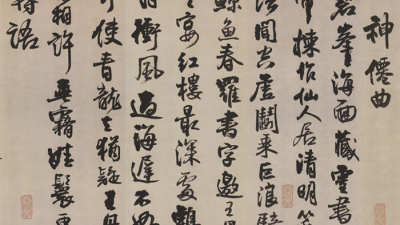 神僊曲
碧峯海面藏靈書
帝揀作仙人居清明笑
語聞空虛鬬乘巨浪騎
鯨魚春羅書字邀王母
宴紅樓最深處鶴
羽衝風過海遲不如
使青龍去猶疑王母
相許垂霧娃鬟更
轉語